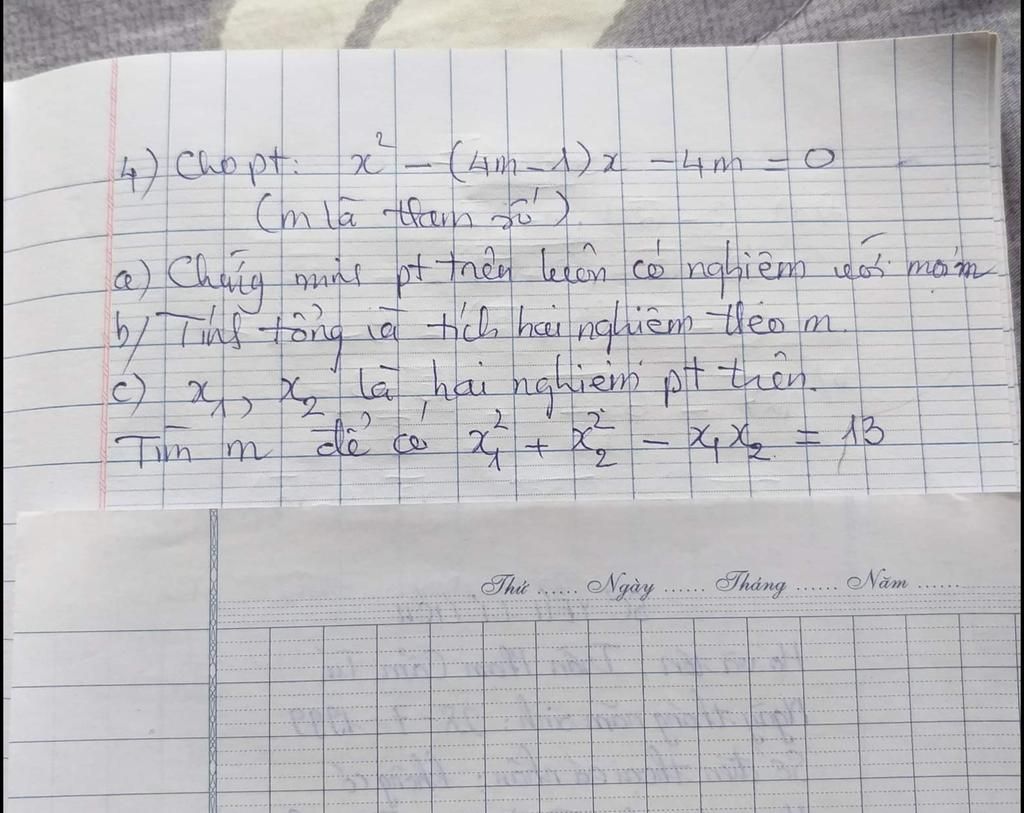 4) Cho pt: x² - (4m - 1)x - 4m = 0
(m là tham số)
a) Chứng minh pt trên luôn có nghiệm với mọi m
b) Tính tổng và tích hai nghiệm theo m.
c) x₁, x₂ là hai nghiệm pt trên.
Tìm m để có x₁² + x₂² - x₁x₂ = 13
Thứ ...... Ngày ...... Tháng ...... Năm ......